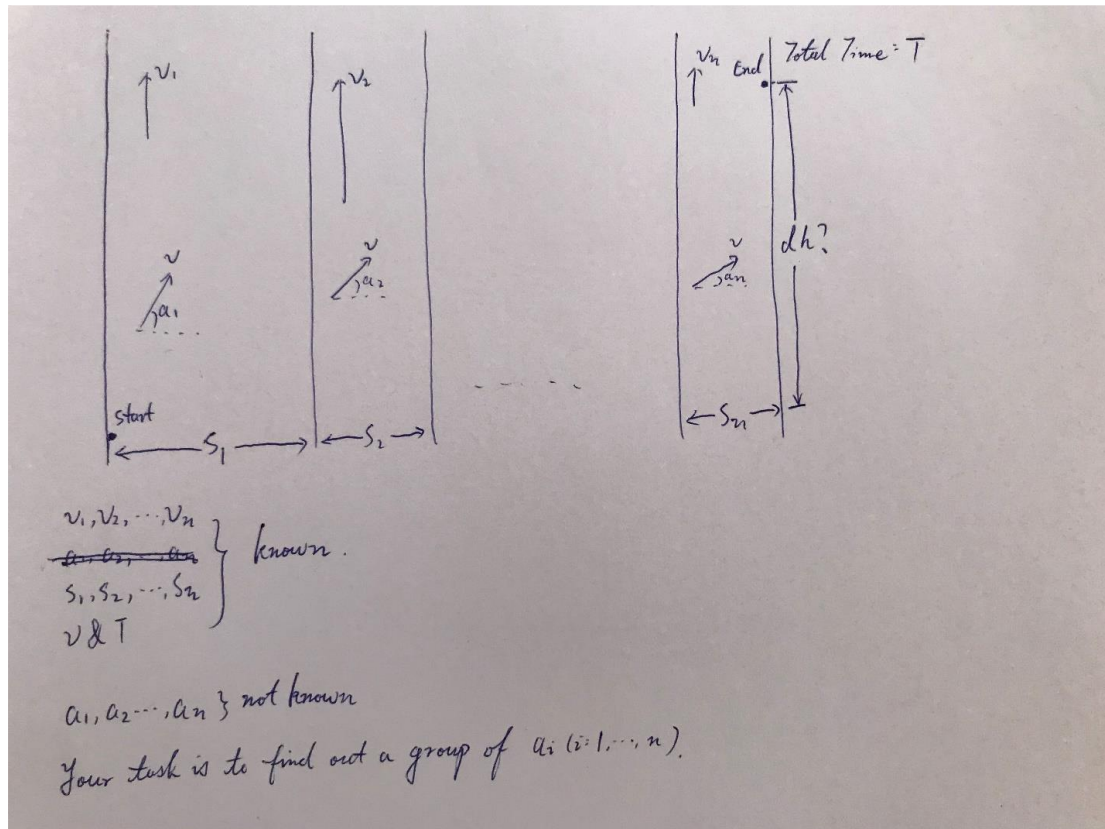 v₁
v₂
vₙ
End
Total Time: T
v
a₁
v
a₂
v
aₙ
dh?
start
S₁
S₂
Sₙ
v₁, v₂, ..., vₙ
a₁, a₂, ..., aₙ
S₁, S₂, ..., Sₙ
v & T
known.
a₁, a₂ ..., aₙ } not known
Your task is to find out a group of aᵢ (i=1, ..., n).